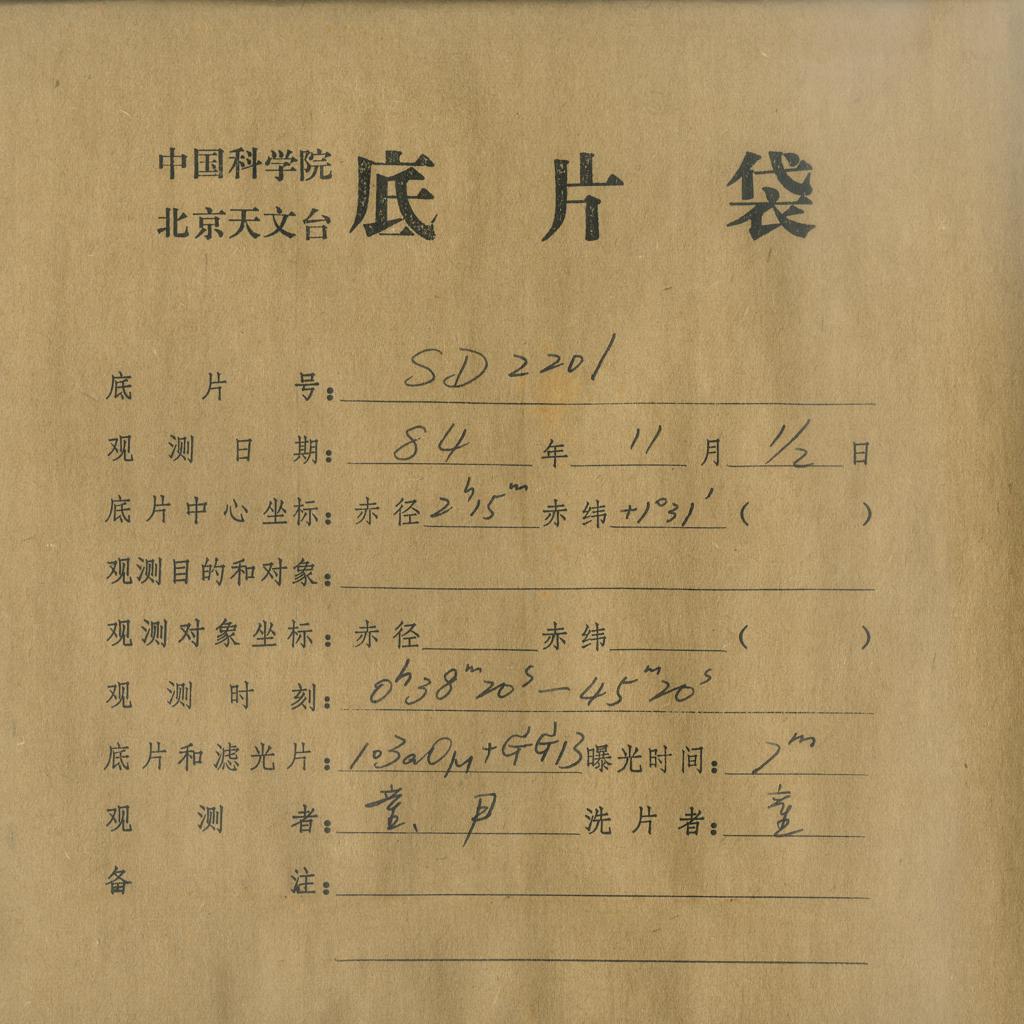 中国科学院
北京天文台
底片袋
底片号：SD2201
观测日期：84年11月1/2日
底片中心坐标：赤径2ʰ15ᵐ赤纬+1°31′（ ）
观测目的和对象：
观测对象坐标：赤径 赤纬 （ ）
观测时刻：0ʰ38ᵐ20ˢ—45ᵐ20ˢ
底片和滤光片：103aO +GG13曝光时间：7ᵐ
观测者：童、 洗片者：童
备注：